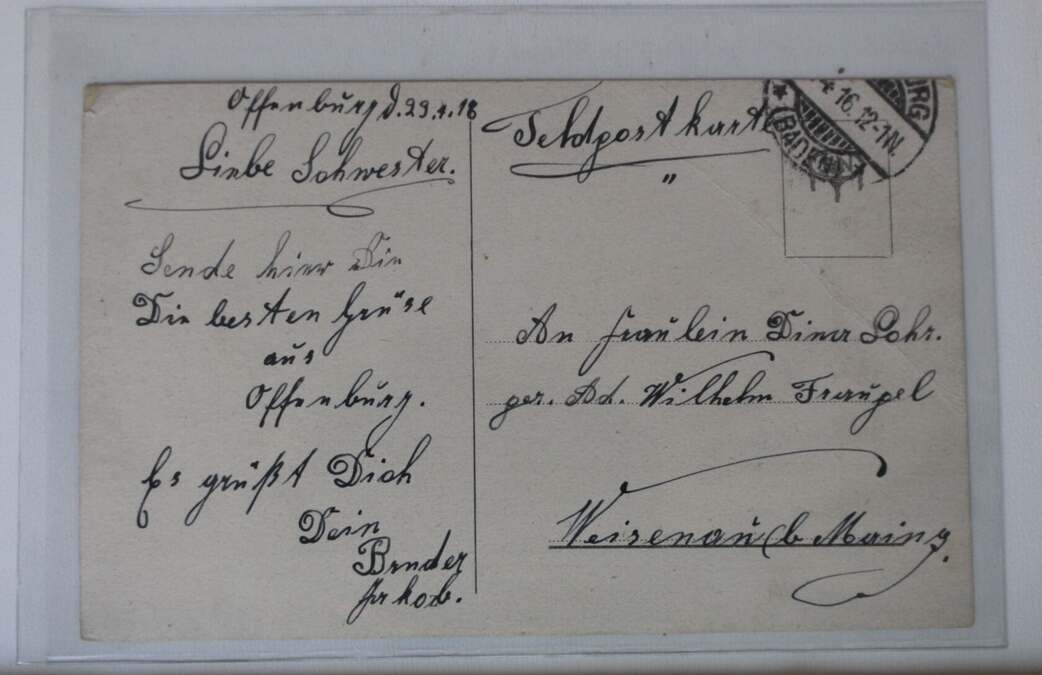 Offenburg d. 23.4.16
Liebe Schwester.
Sende hier Die
Die besten Grüse
aus
Offenburg.
Es grüßt Dich
Dein
Bruder
Jakob.
Feldpostkarte
"
4 16.12-1N
URG
* (BADEN)
An Fräulein Dina Lohr.
per. Ad. Wilhelm Fraupel
Weisenau b Mainz.